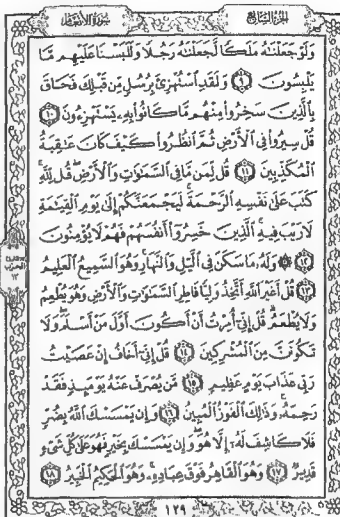 سُورَةُ الأَنْعَام الجُزْءُ السَّابِعُ
وَلَوْ جَعَلْنَٰهُ مَلَكًا لَّجَعَلْنَٰهُ رَجُلًا وَلَلَبَسْنَا عَلَيْهِم مَّا
يَلْبِسُونَ ٩ وَلَقَدِ ٱسْتُهْزِئَ بِرُسُلٍ مِّن قَبْلِكَ فَحَاقَ
بِٱلَّذِينَ سَخِرُوا۟ مِنْهُم مَّا كَانُوا۟ بِهِۦ يَسْتَهْزِءُونَ ١٠
قُلْ سِيرُوا۟ فِى ٱلْأَرْضِ ثُمَّ ٱنظُرُوا۟ كَيْفَ كَانَ عَٰقِبَةُ
ٱلْمُكَذِّبِينَ ١١ قُل لِّمَن مَّا فِى ٱلسَّمَٰوَٰتِ وَٱلْأَرْضِ ۖ قُل لِّلَّهِ ۚ
كَتَبَ عَلَىٰ نَفْسِهِ ٱلرَّحْمَةَ ۚ لَيَجْمَعَنَّكُمْ إِلَىٰ يَوْمِ ٱلْقِيَٰمَةِ
لَا رَيْبَ فِيهِ ۚ ٱلَّذِينَ خَسِرُوٓا۟ أَنفُسَهُمْ فَهُمْ لَا يُؤْمِنُونَ
١٢ ۞ وَلَهُۥ مَا سَكَنَ فِى ٱلَّيْلِ وَٱلنَّهَارِ ۚ وَهُوَ ٱلسَّمِيعُ ٱلْعَلِيمُ
١٣ قُلْ أَغَيْرَ ٱللَّهِ أَتَّخِذُ وَلِيًّا فَاطِرِ ٱلسَّمَٰوَٰتِ وَٱلْأَرْضِ وَهُوَ يُطْعِمُ
وَلَا يُطْعَمُ ۗ قُلْ إِنِّىٓ أُمِرْتُ أَنْ أَكُونَ أَوَّلَ مَنْ أَسْلَمَ ۖ وَلَا
تَكُونَنَّ مِنَ ٱلْمُشْرِكِينَ ١٤ قُلْ إِنِّىٓ أَخَافُ إِنْ عَصَيْتُ
رَبِّى عَذَابَ يَوْمٍ عَظِيمٍ ١٥ مَّن يُصْرَفْ عَنْهُ يَوْمَئِذٍ فَقَدْ
رَحِمَهُۥ ۚ وَذَٰلِكَ ٱلْفَوْزُ ٱلْمُبِينُ ١٦ وَإِن يَمْسَسْكَ ٱللَّهُ بِضُرٍّ
فَلَا كَاشِفَ لَهُۥٓ إِلَّا هُوَ ۖ وَإِن يَمْسَسْكَ بِخَيْرٍ فَهُوَ عَلَىٰ كُلِّ شَىْءٍ
قَدِيرٌ ١٧ وَهُوَ ٱلْقَاهِرُ فَوْقَ عِبَادِهِۦ ۚ وَهُوَ ٱلْحَكِيمُ ٱلْخَبِيرُ ١٨
١٢٩